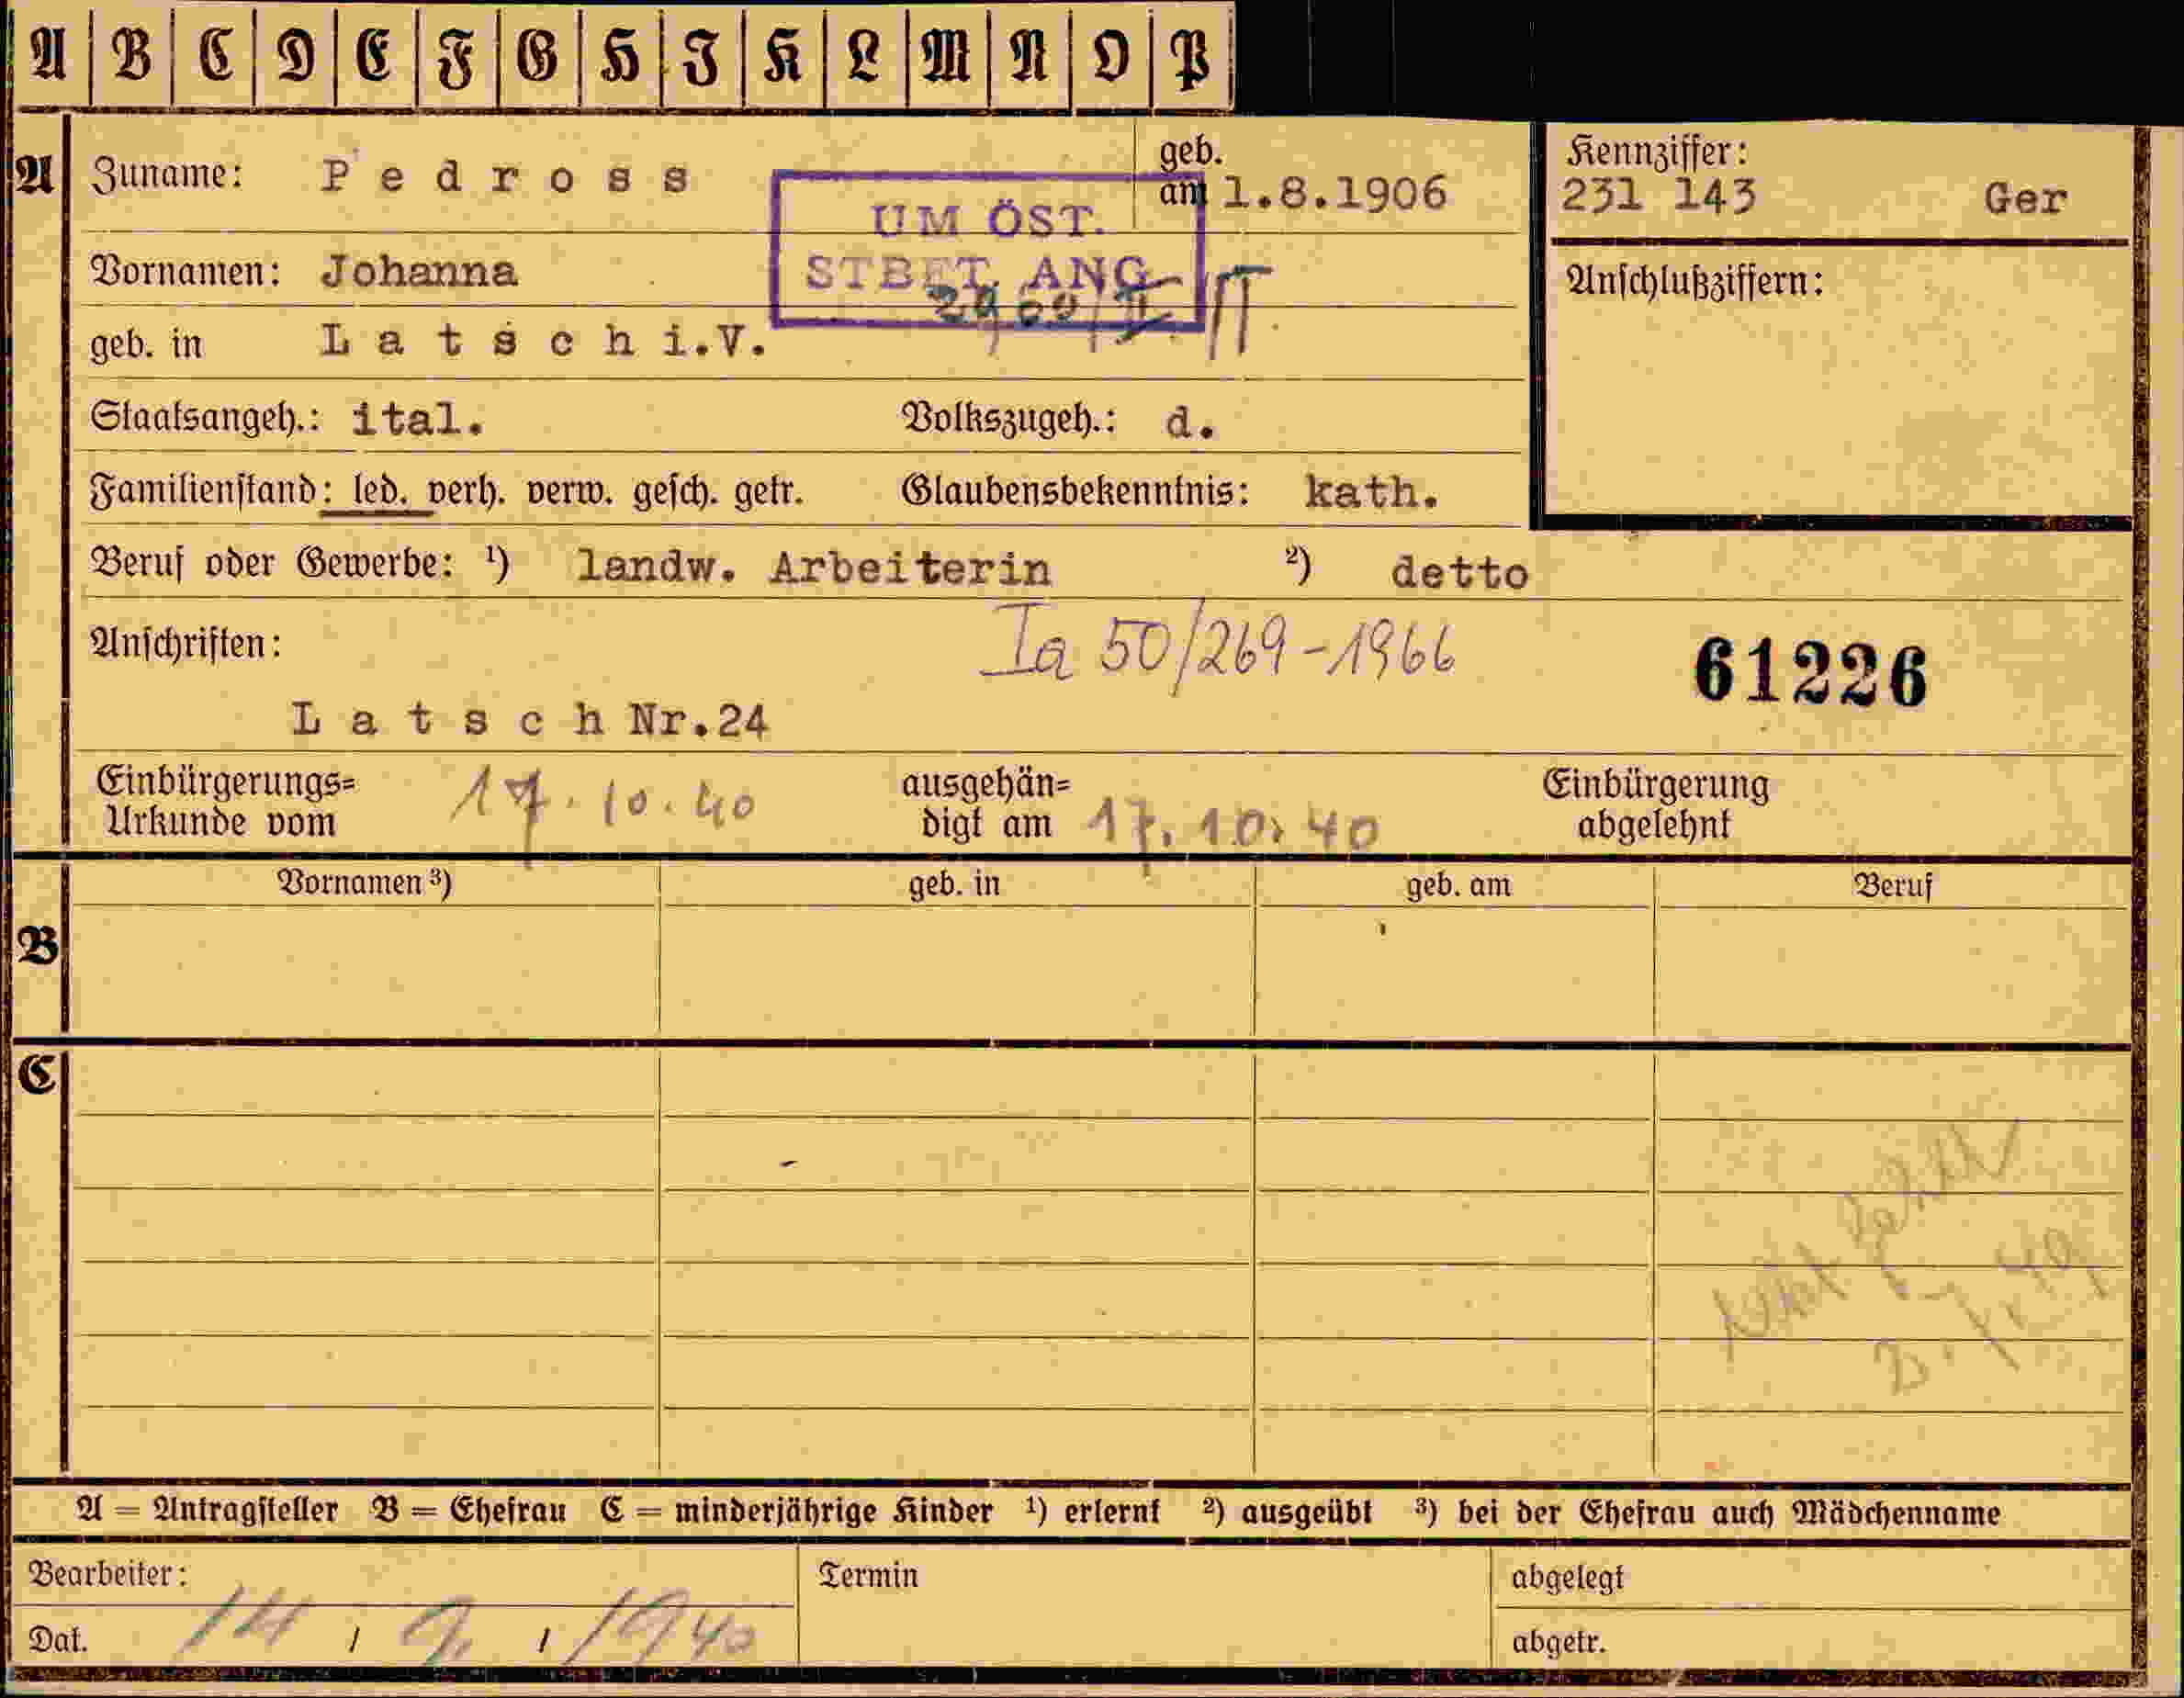 A B C D E F G H I K L M N O P
A Zuname: Pedross geb. am 1.8.1906 Kennziffer: 231 143 Ger
UM ÖST.
STBET. ANG
Vornamen: Johanna Anschlußziffern:
geb. in Latsch i.V.
Staatsangeh.: ital. Volkszugeh.: d.
Familienstand: led. verh. verw. gesch. getr. Glaubensbekenntnis: kath.
Beruf oder Gewerbe: ¹) landw. Arbeiterin ²) detto
Anschriften: Ia 50/269-1966 61226
Latsch Nr.24
Einbürgerungs=
Urkunde vom 17.10.40 ausgehän=
digt am 17.10.40 Einbürgerung
abgelehnt
Vornamen ³) geb. in geb. am Beruf
B
C
A = Antragsteller B = Ehefrau C = minderjährige Kinder ¹) erlernt ²) ausgeübt ³) bei der Ehefrau auch Mädchenname
Bearbeiter: Termin abgelegt
Dat. 14 / 9. / 1940 abgetr.